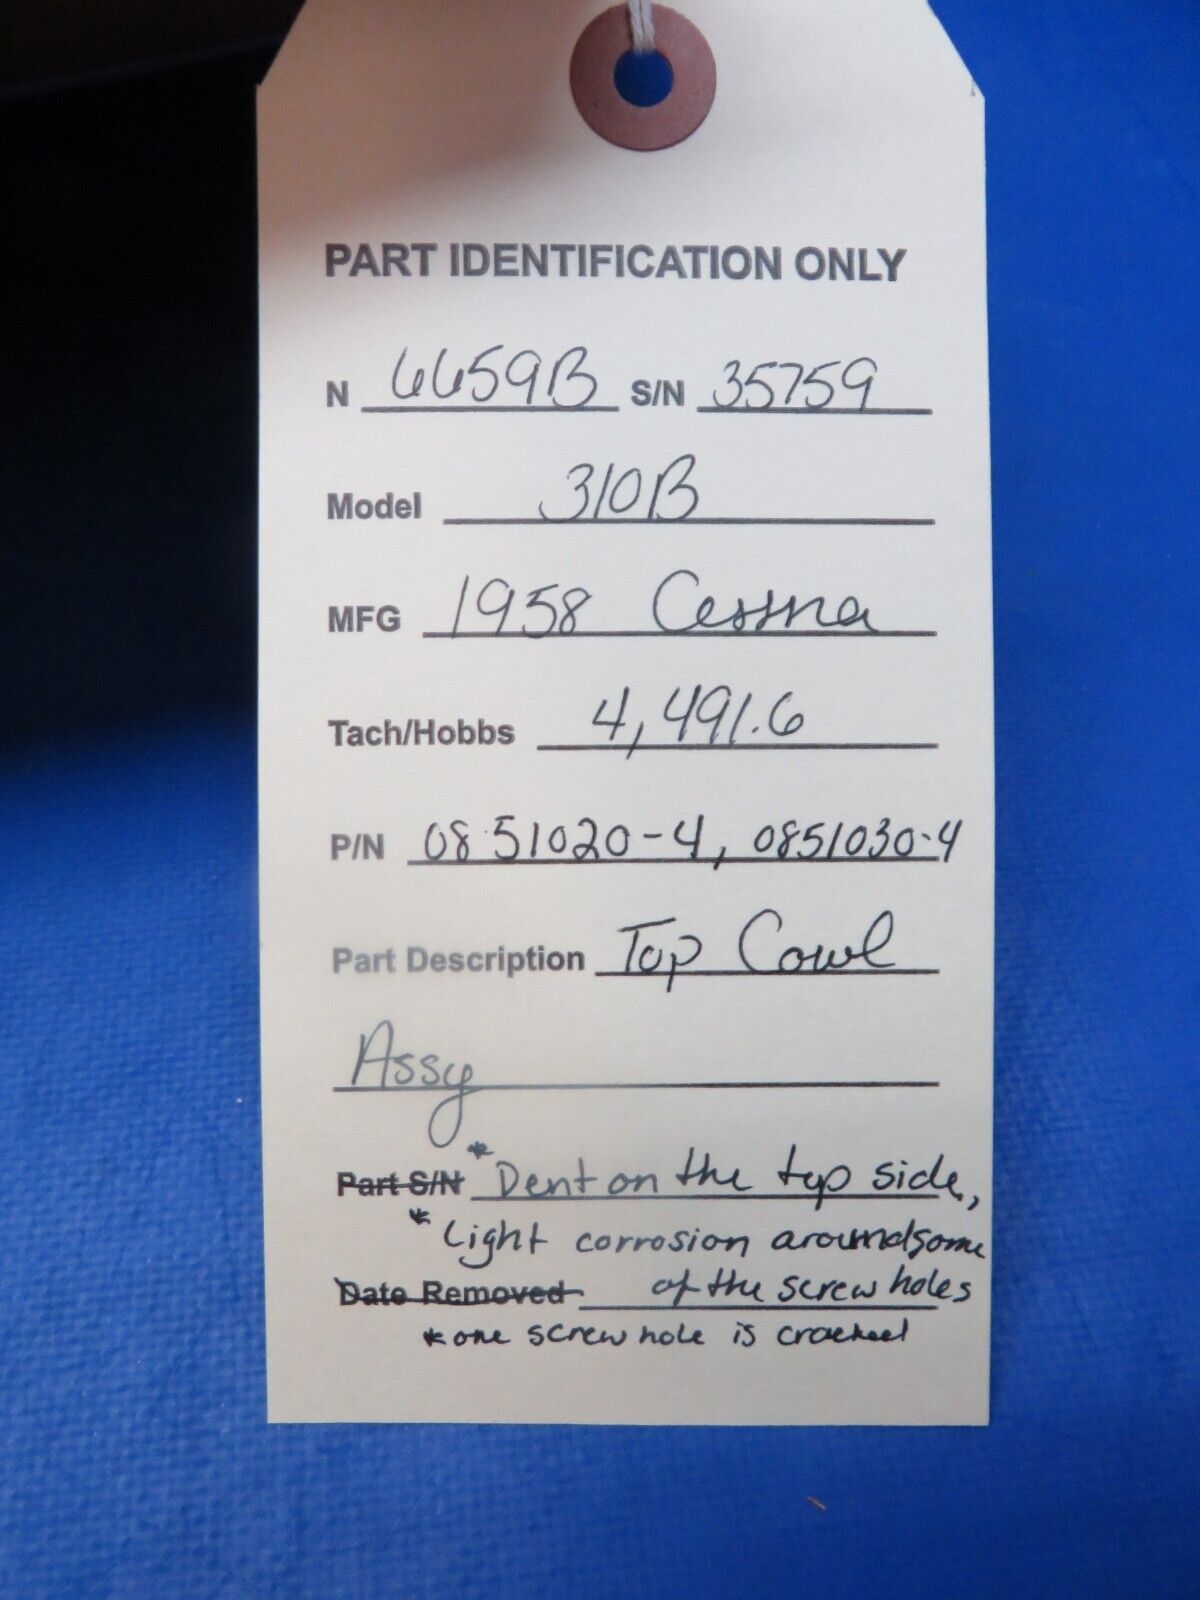 PART IDENTIFICATION ONLY
N 6659B S/N 35759
Model 310B
MFG 1958 Cessna
Tach/Hobbs 4,491.6
P/N 0851020-4, 0851030-4
Part Description Top Cowl
Assy
Part S/N * Dent on the top side,
* Light corrosion around some
Date Removed of the screw holes
* one screw hole is cracked